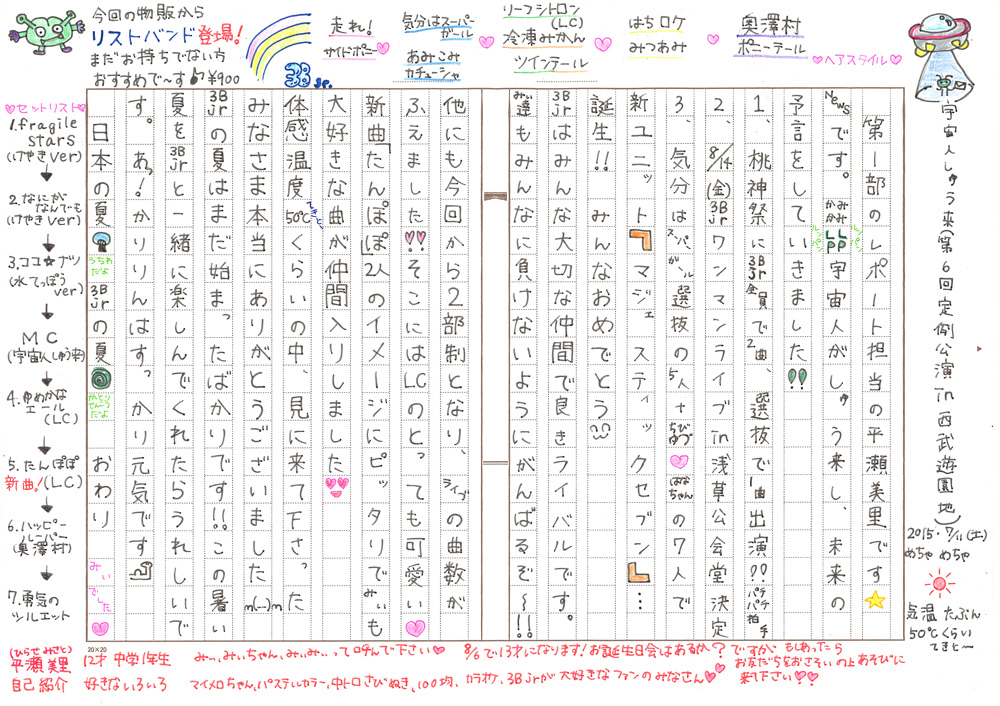 宇宙人しゅう来(第6回定例公演in西武遊園地)
2015.7/11(土)
めちゃ めちゃ
気温 たぶん
50℃くらい
てきと〜
♡ヘアスタイル♡
奥澤村
ポニーテール
はちロケ
みつあみ
リーフシトロン
(LC)
冷凍みかん
ツインテール
気分はスーパーガール
あみこみ
カチューシャ
走れ!
サイドポニー
3Bjr.
今回の物販から
リストバンド登場!
まだお持ちでない方
おすすめで〜す♪¥900
第一部のレポート担当の平瀬美里です☆
Newsです。かみかみLLPP宇宙人がしゅう来し、未来の
予言をしていきました!!
1、桃神祭に3Bjr全員で2曲、選抜で1曲出演!!パチパチ拍手
2、8/14(金)3Bjrワンマンライブin浅草公会堂決定
3、気分はスーパーガール選抜の5人+ちびゆづ♡はなちゃんの7人で
新ユニット『マジェスティックセブン』…
誕生!!みんなおめでとう
3Bjrはみんな大切な仲間で良きライバルです。
みぃ達もみんなに負けないようにがんばるぞ〜!!
他にも今回から2部制となり、ライブの曲数が
ふえました!!そこにはLCのとっても可愛い♡
新曲「たんぽぽ」2人のイメージにピッタリでみぃも
大好きな曲が仲間入りしました
体感温度50℃てきとうくらいの中、見に来て下さった
みなさま本当にありがとうございましたm(__)m
3Bjrの夏はまだ始まったばかりです!!この暑い
夏を3Bjrと一緒に楽しんでくれたらうれしいで
す。あっ!かりりんはすっかり元気です
日本の夏 うちわだよ 3Bjrの夏 かとりせんこうだよ おわり みぃでした♡
♡セットリスト♡
1.fragile stars
(けやきver)
2.なにがなんでも
(けやきver)
3.ココ☆ナツ
(水てっぽうver)
MC
(宇宙人しゅう来)
4.ゆめかなエール
(LC)
5.たんぽぽ
新曲!(LC)
6.ハッピールーパー
(奥澤村)
7.勇気のシルエット
20×20
(ひらせ みさと)
平瀬 美里 12才 中学1年生 みぃ、みぃちゃん、みぃみぃって呼んで下さい♡ 8/6で13才になります!お誕生日会はあるか?ですがもしあったら
お友だちをおさそいの上あそびに来て下さい♡♡
自己紹介 好きないろいろ マイメロちゃん、パステルカラー、中トロさびぬき、100均、カラオケ、3Bjrが大好きなファンのみなさん♡